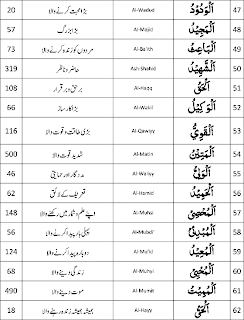 20 بڑا محبت کرنے والا Al-Wadud اَلْوَدُوْدُ 47
57 بڑا بزرگ Al-Majid اَلْمَجِيْدُ 48
73 مردوں کو زندہ کرنے والا Al-Ba'ith اَلْبَاعِثُ 49
319 حاضر و ناظر Ash-Shahid اَلشَّهِيْدُ 50
108 برحق و برقرار Al-Haqq اَلْحَقُّ 51
66 بڑا کارساز Al-Wakil اَلْوَكِيْلُ 52
116 بڑی طاقت و قوت والا Al-Qawiyy اَلْقَوِيُّ 53
500 شدید قوت والا Al-Matin اَلْمَتِيْنُ 54
46 مددگار اور حمایتی Al-Waliyy اَلْوَلِيُّ 55
62 تعریف کے لائق Al-Hamid اَلْحَمِيْدُ 56
148 اپنے علم و شمار میں رکھنے والا Al-Muhsi اَلْمُحْصِيْ 57
56 پہلی بار پیدا کرنے والا Al-Mubdi' اَلْمُبْدِئُ 58
124 دوبارہ پیدا کرنے والا Al-Mu'id اَلْمُعِيْدُ 59
68 زندگی دینے والا Al-Muhyi اَلْمُحْيِيْ 60
490 موت دینے والا Al-Mumit اَلْمُمِيْتُ 61
18 ہمیشہ ہمیشہ زندہ رہنے والا Al-Hayy اَلْحَيُّ 62